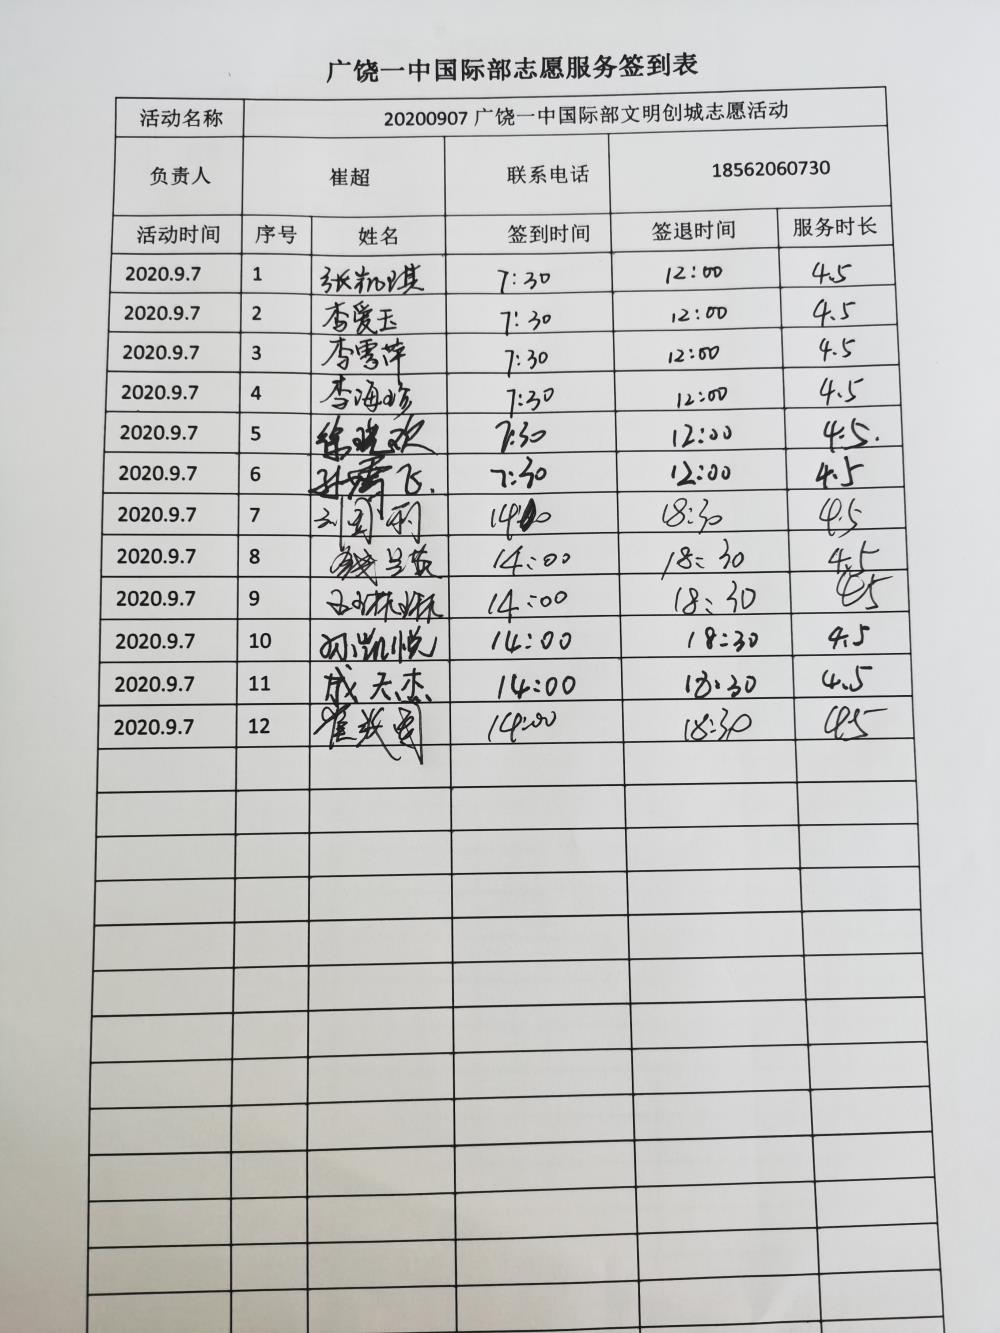 广饶一中国际部志愿服务签到表
活动名称 20200907 广饶一中国际部文明创城志愿活动
负责人 崔超 联系电话 18562060730
活动时间 序号 姓名 签到时间 签退时间 服务时长
2020.9.7 1 张凯琪 7:30 12:00 4.5
2020.9.7 2 李爱玉 7:30 12:00 4.5
2020.9.7 3 李雪萍 7:30 12:00 4.5
2020.9.7 4 李海珍 7:30 12:00 4.5
2020.9.7 5 徐晓欢 7:30 12:00 4.5.
2020.9.7 6 飞 7:30 12:00 4.5
2020.9.7 7 利 18:30 4.5
2020.9.7 8 14:00 18:30 4.5
2020.9.7 9 王琳琳 14:00 18:30 4.5
2020.9.7 10 孙凯悦 14:00 18:30 4.5
2020.9.7 11 成天杰 14:00 18:30 4.5
2020.9.7 12 崔 14:00 18:30 4.5